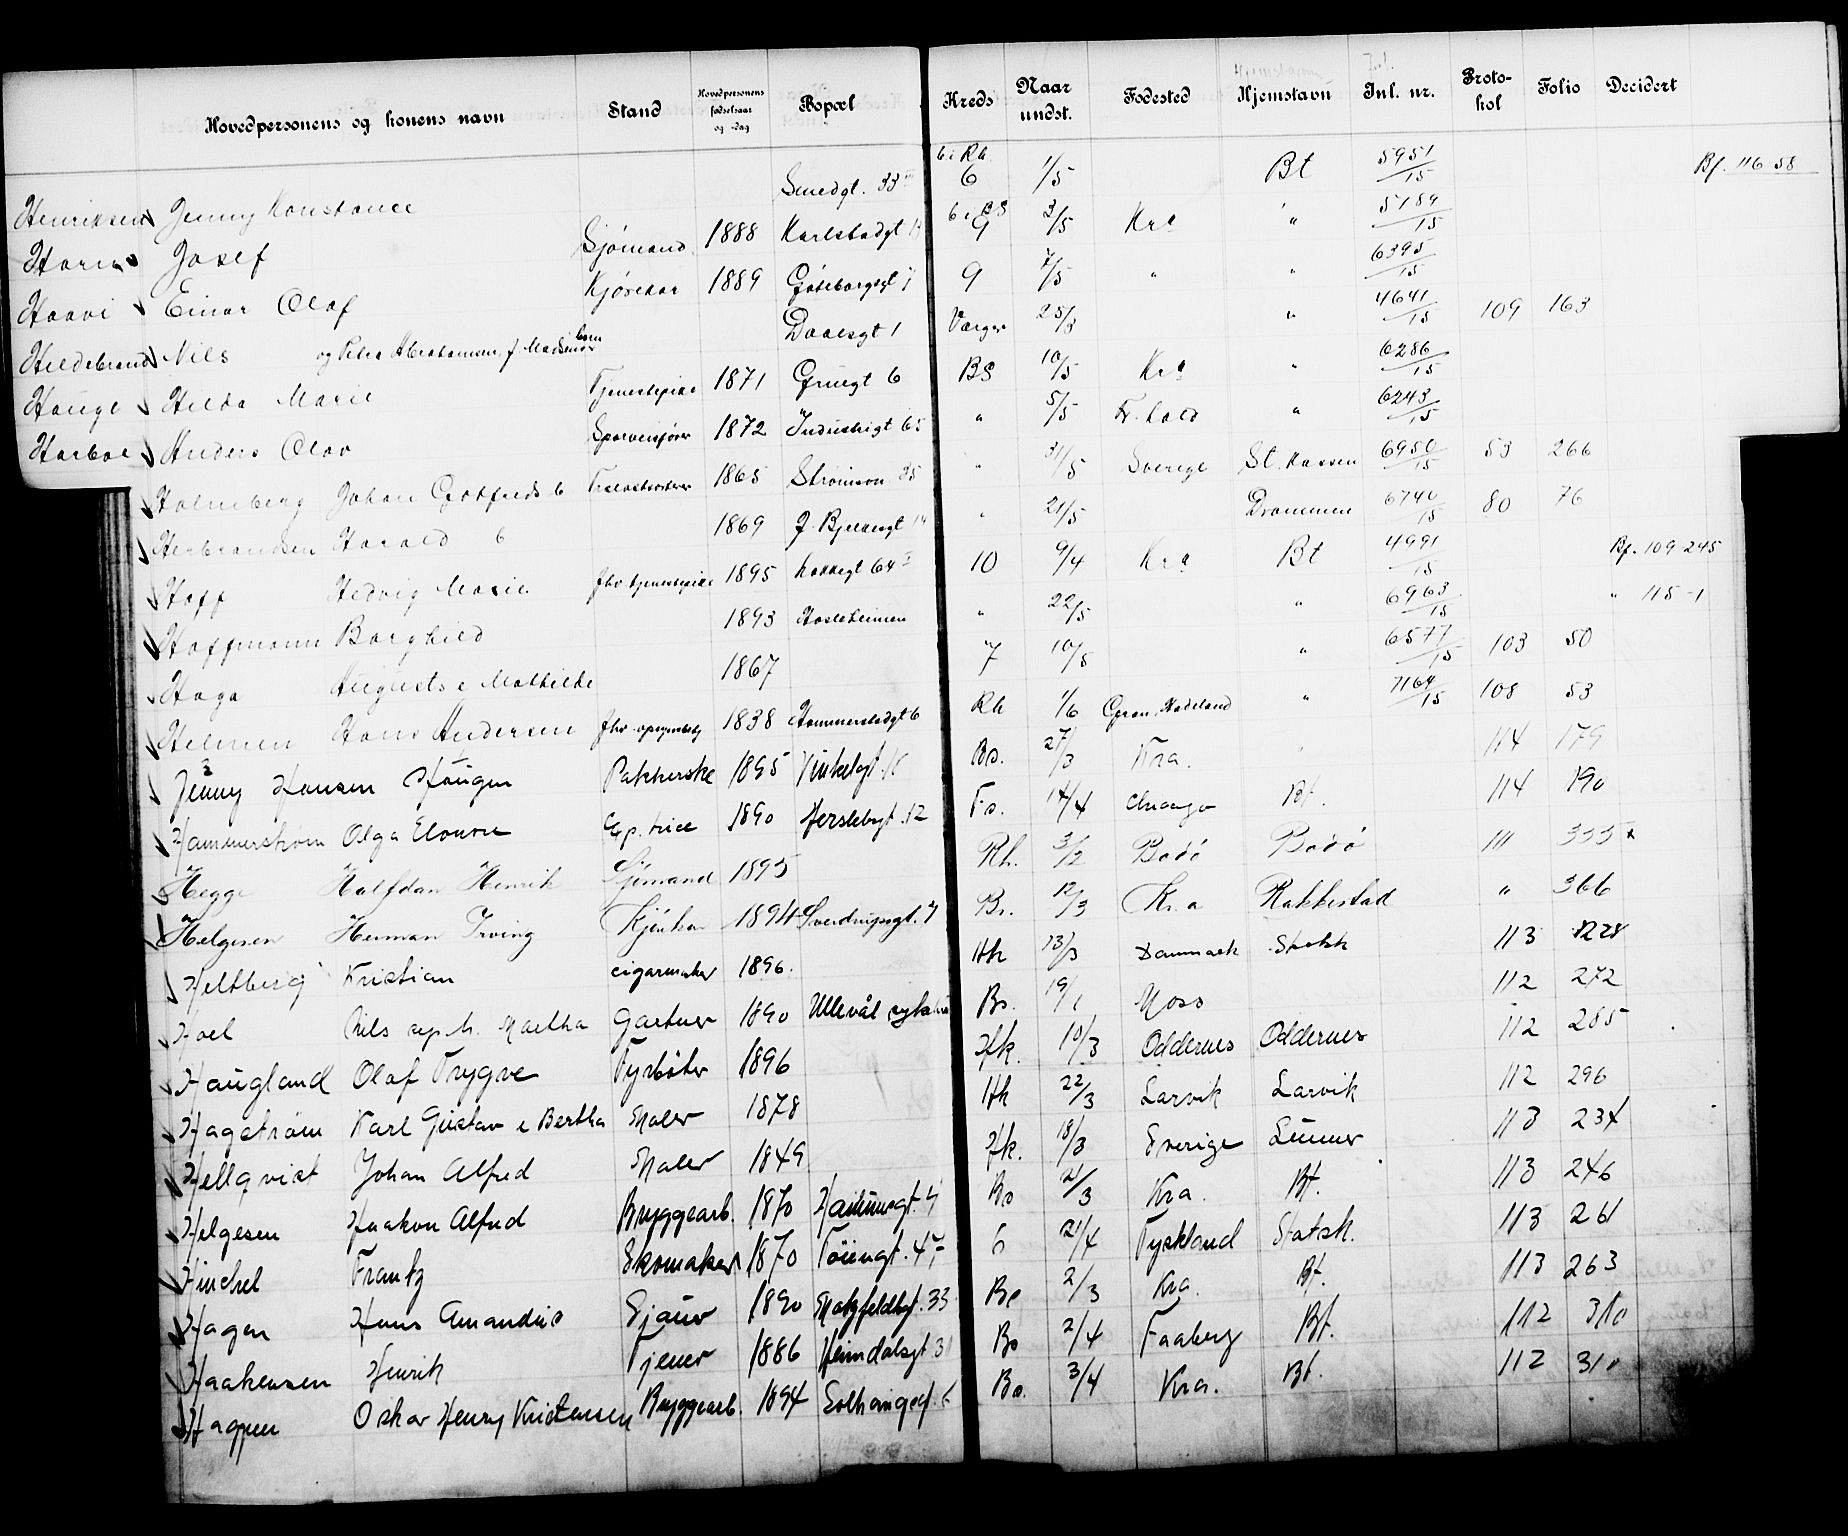 Hovedpersonens og konens navn Stand Hovedpersonens fødselsaar og -dag Bopæl Kreds Naar undst. Fødested Hjemstavn Inl. nr. Protokol Folio Decidert
Henriksen Jenny Konstance Smedgt. 33 III 6 i Rh. 6 1/5 Bt 5951/15 Bf. 116 58
Josef Sjømand 1888 Karlstadgt 6 i BS 9 3/5 Kra " 5189/15
Haavi Einar Olaf Kjørekar 1889 Gøteborggt 7 9 7/5 " " 6395/15
Hildebrand Nils og Petra Abrahamsen, f. Madsen Daaesgt 1 25/3 " 4641/15 109 163
Hauge Hilda Marie Tjenestepike 1871 Gruegt 6 BS 10/5 Kra " 6286/15
Harboe Anders Olav 1872 Industrigt 65 " 5/5 Fr.hald " 6243/15
Holmberg Johan Gotfreds 6 1865 Strømsvn 35 " 31/5 Sverige St. kassen 6950/15 53 266
Herbrandsen Harald 6 1869 J. Bjelkesgt 14 " 21/5 Drammen 6740/15 80 76
Hoff Hedvig Marie fhv tjenestepike 1895 Lakkegt 64 10 9/4 Kra Bt 4991/15 Bf. 109 245
Hoffmann Borghild 1893 Hasleheimen " 22/5 " 6963/15 " 115-1
Haga Augusta e Mathilde 1867 7 10/5 " 6577/15 103 50
Helmen Hans Andersen fhv 1838 Hammerstadgt 6 Rh 1/6 Gran, Hadeland " 7164/15 108 53
Jenny Hansen Haugen Pakkerske 1895 Vinkelgt. Bs. 27/3 Kra. " 114 179
Hammerstrøm Olga Elonore Exp. trice 1890 Herslebgt. 12 Fs. 14/4 Chicago Bt. 114 190
Hegge Halfdan Henrik Sjømand 1895 Rh. 3/2 Bodö Bodö 111 355 x
Helgesen Herman Irving Kjørekar 1894 Sverdrupsgt. 7 Bs. 12/3 Kr.a Rakkestad " 366
Heltberg Kristian cigarmaker 1896. Hk 13/3 Danmark Statsk 113 228
Hoel Nils og h. Martha Gartner 1890 Ullevål sykehus Bs. 19/1 Moss 112 272
Haugland Olaf Trygve Fyrbøter 1896 Hk. 10/3 Oddernes Oddernes 112 285
Hagstrøm Karl Gustav e Bertha Maler 1878 Hk 22/3 Larvik Larvik 112 296
Hellqvist Johan Alfred Maler 1849 Hk. 18/3 Sverige Lunner 113 234
Helgesen Haakon Alfred Bryggearb. 1870 Hausmsgt. 4 Bs 21/3 Kra. Bt. 113 246
Hinchel Frantz Skomaker 1870 Tøiengt. 47 6 21/4 Tyskland Statsk. 113 261
Hagen Hans Amandus 1890 Motzfeldtsgt. 33 Bs 2/3 Kra. Bt. 113 263
Haakensen Henrik Tjener 1886 Heimdalsgt 31 Bs 2/4 Faaberg Bt. 112 310
Oskar Henry Kristensen Bryggearb. 1894 Solhauggt. 6 Bs. 3/4 Kra. Bt. 112 310